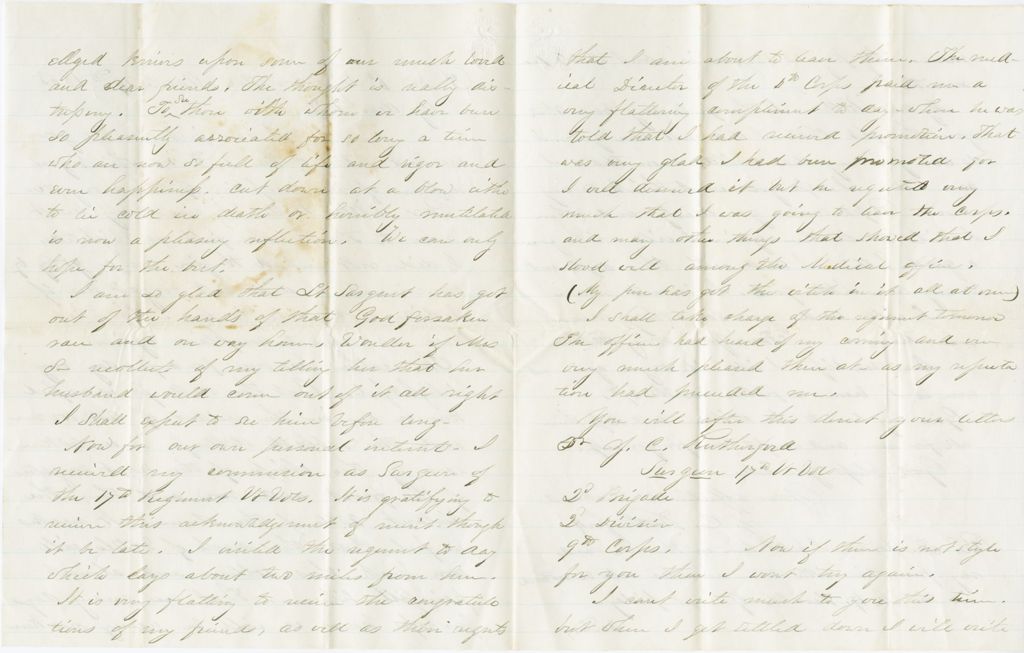 edged knives upon some of our much loved
and dear friends. The thought is really dis-
tressing. To See those with whom we have been
so pleasantly associated for so long a time
who are now so full of life and vigor and
even happiness. cut down at a blow either
to lie cold in death or horribly mutilated
is now a pleasing reflection. We can only
hope for the best.
I am so glad that Lt Sargent has got
out of the hands of that God forsaken
race and on way home. Wonder if Mrs
S recollects of my telling her that her
husband would come out of it all right
I shall expect to see him before long-
Now for our own personal interest- I
received my commission as Surgeon of
the 17th Regiment Vt Vols. It is gratifying to
receive this acknowledgement of merit though
it be late. I visited the regiment to day
which lays about two miles from here.
It is very flatting to receive the congratula
tions of my friends, as well as their regrets
that I am about to leave them. The med-
ical Director of the 6th Corps paid me a
very flattering compliment to day- when he was
told that I had received promotion. That
was very glad I had been promoted for
I well deserved it but he regretted very
much that I was going to leave the Corps.
and many other things that showed that I
stood well among the Medical officers.
(My pen has got the in it all at once)
I shall take charge of the regiment tomorrow
The officers had heard of my coming and were
very much pleased there at- as my reputa
tion had preceeded me.
You will after this direct your letters
Dr J. C. Rutherford
Surgeon 17th Vt Vols
2d Brigade
2 Division
9th Corps. Now if there is not style
for you then I wont try again.
I cant write much to you this time.
but when I get settled down I will write